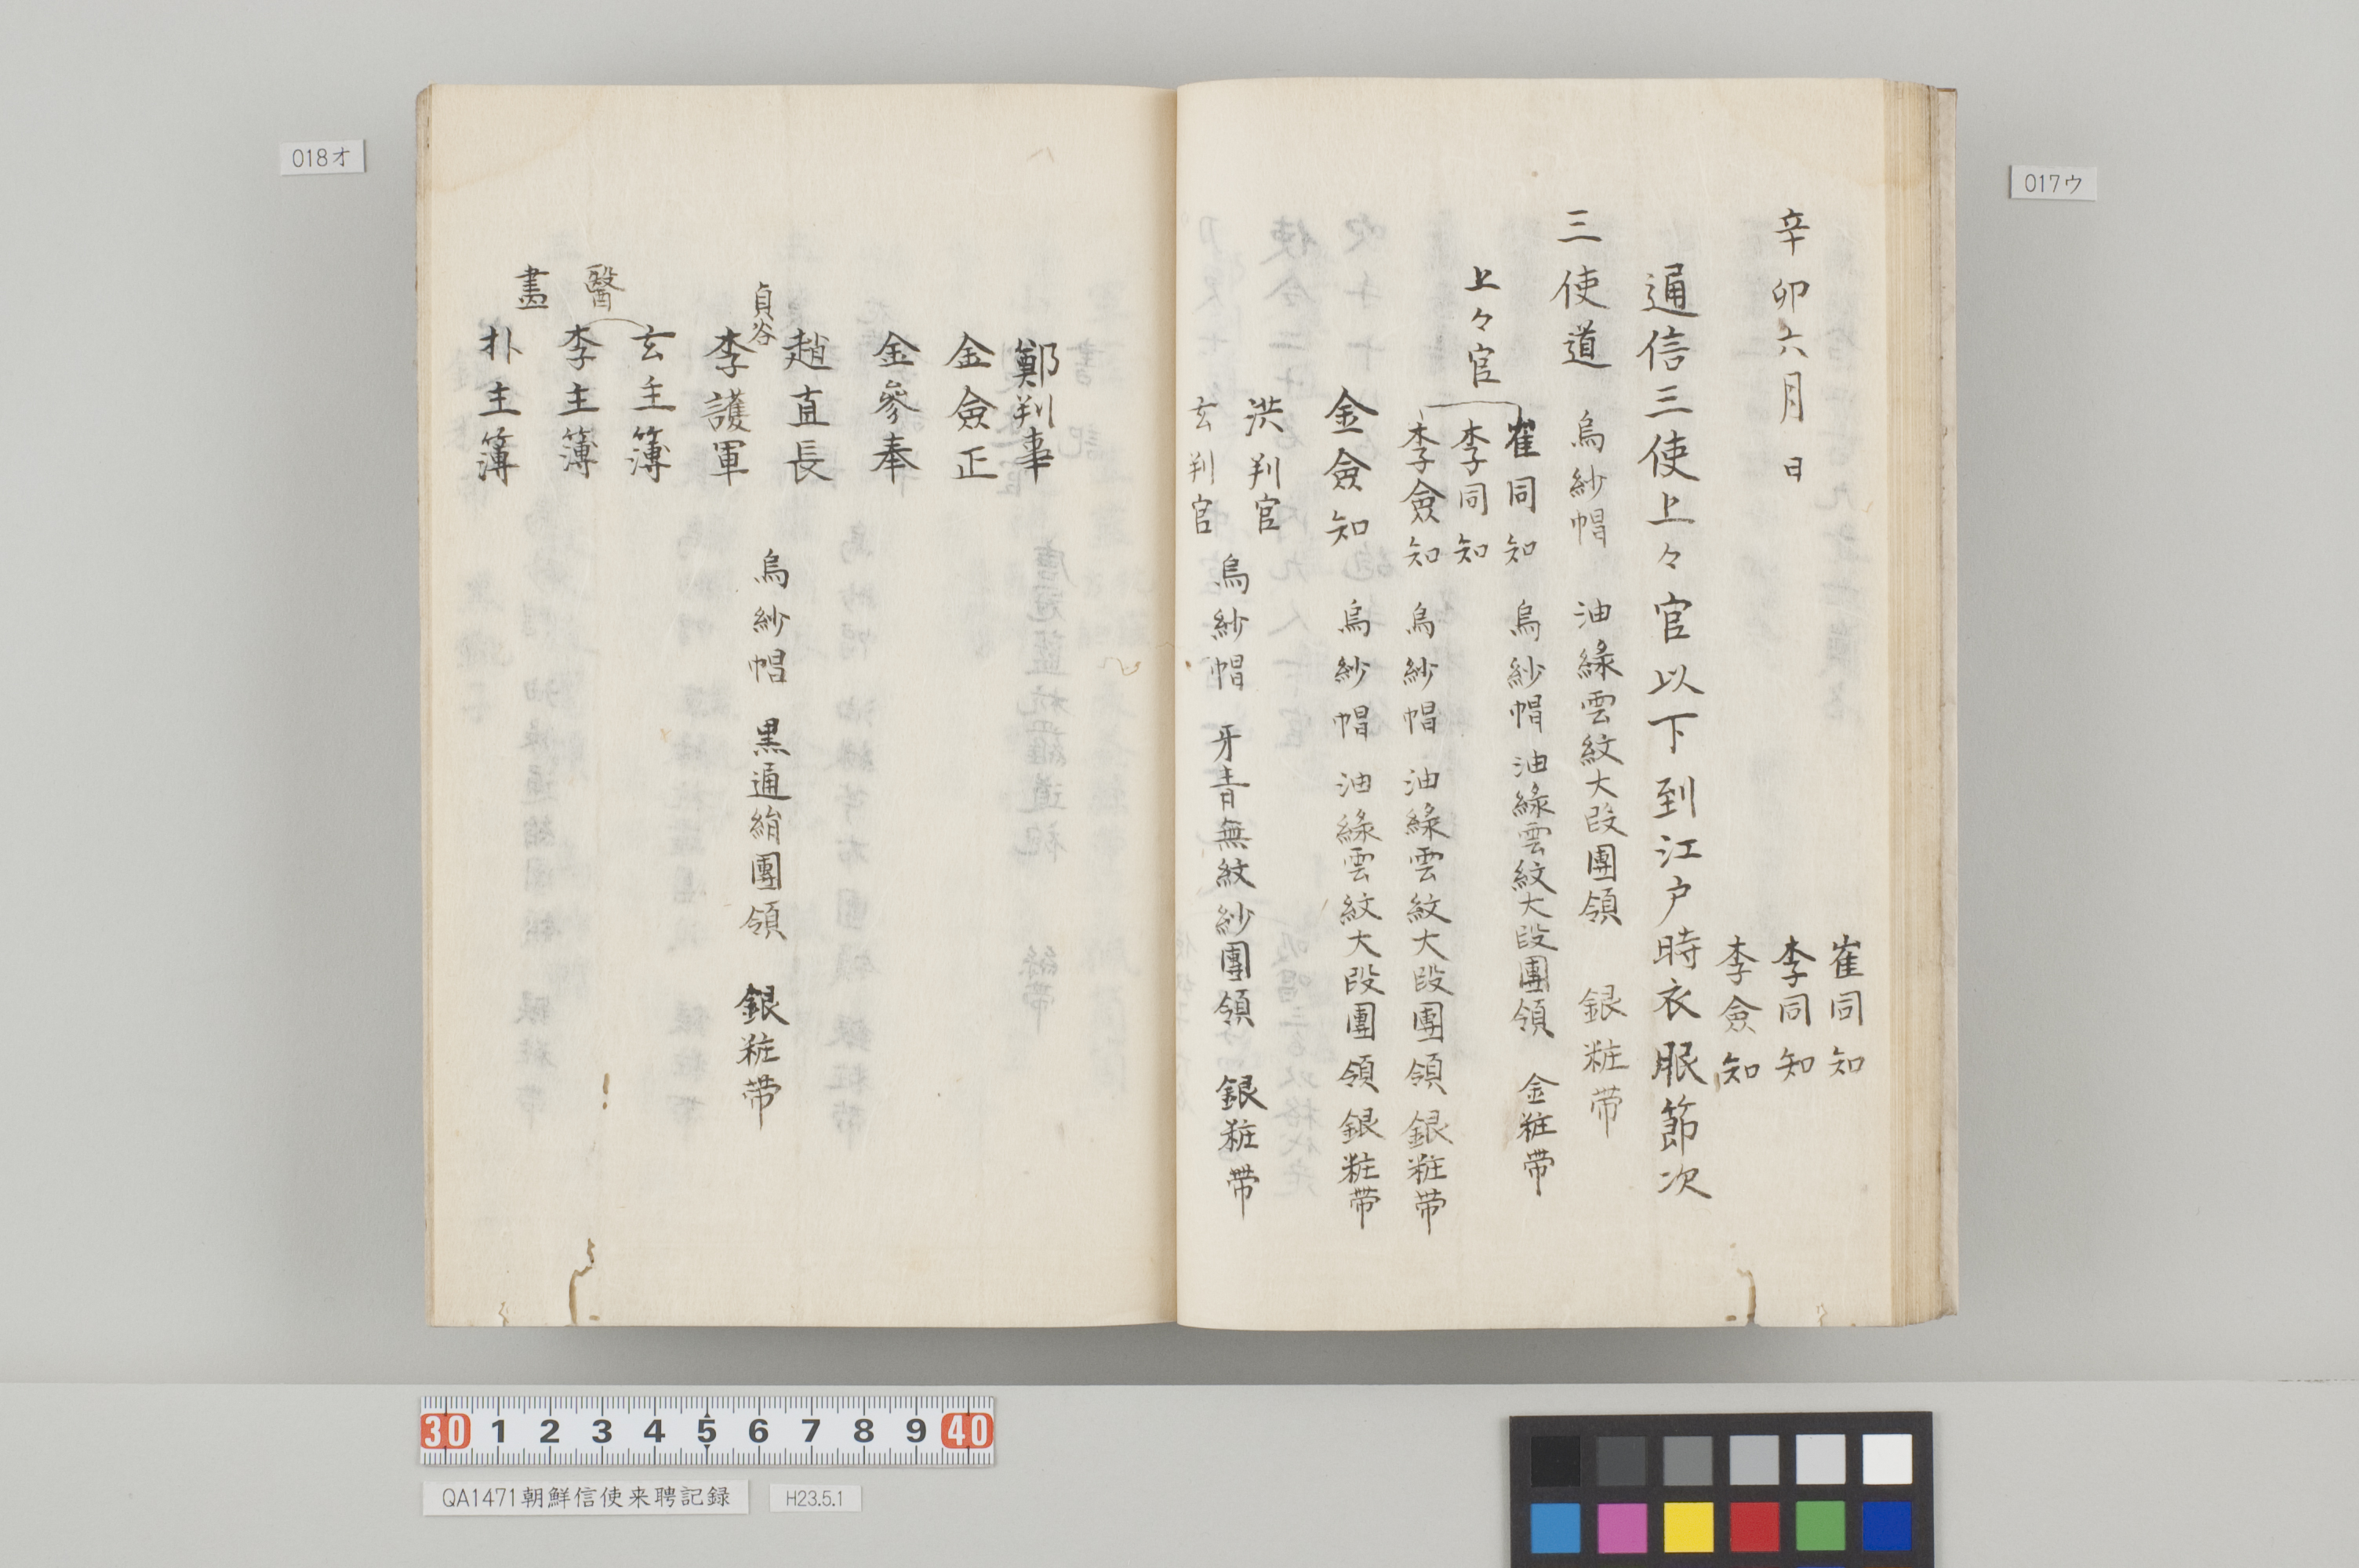 辛卯六月日
崔同知
李同知
李僉知
通信三使上々官以下到江户時衣服節次
三使道 烏紗帽 油綠雲紋大段團領 銀粧帶
上々官
崔同知 烏紗帽 油綠雲紋大段團領 金粧帶
李同知
李僉知 烏紗帽 油綠雲紋大段團領 銀粧帶
金僉知 烏紗帽 油綠雲紋大段團領 銀粧帶
洪判官
烏紗帽 牙青無紋紗團領 銀粧帶
玄判官
鄭判事
金僉正
金參奉
趙直長
烏紗帽 黒通絹團領 銀粧帶
貞谷
李護軍
醫
玄主簿
李主簿
畵
朴主簿
017ウ
018オ
30 1 2 3 4 5 6 7 8 9 40
QA1471朝鮮信使来聘記録
H23.5.1